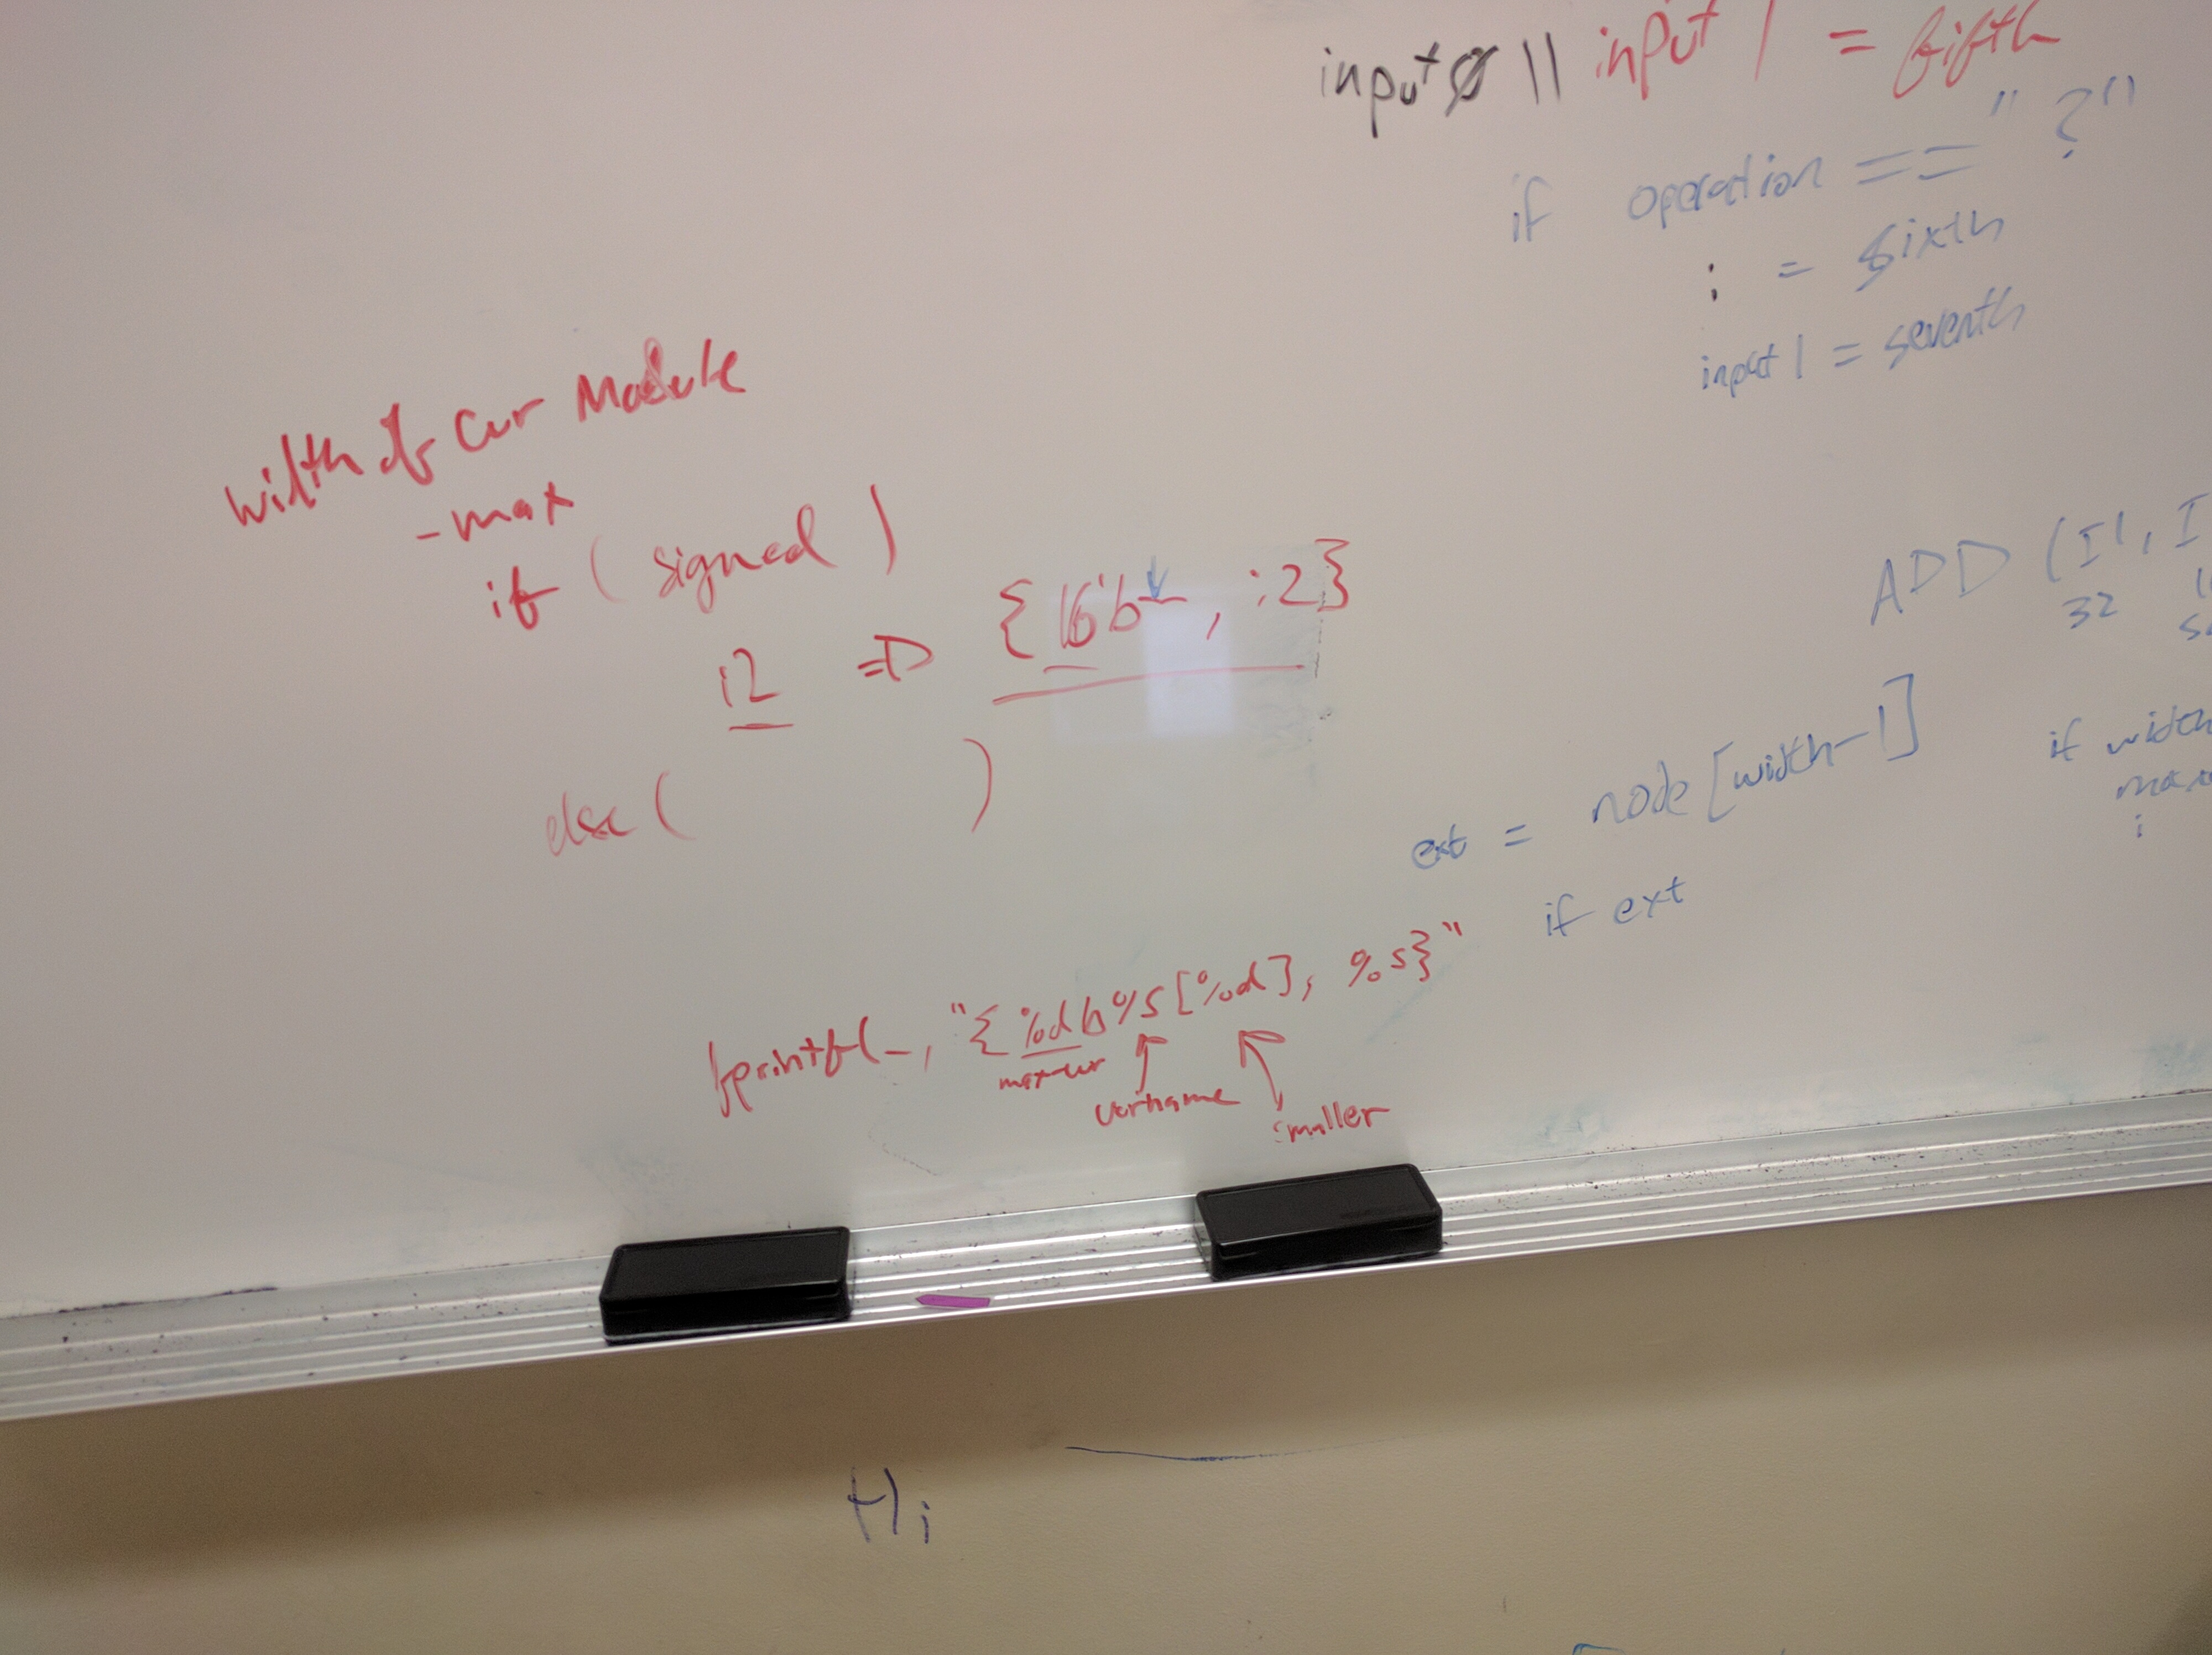 inputø || input1 = fifth
if operation == "?"
: = sixth
input1 = seventh
width of Cur Module
-max
if (signed)
i2 => {16'b_, i2}
else ( )
ADD (I1, I
32
ext = node[width-1]
if width
max
i
if ext
fprintf(_, "{%db%s[%d], %s}"
max-cur
varname
smaller
Hi